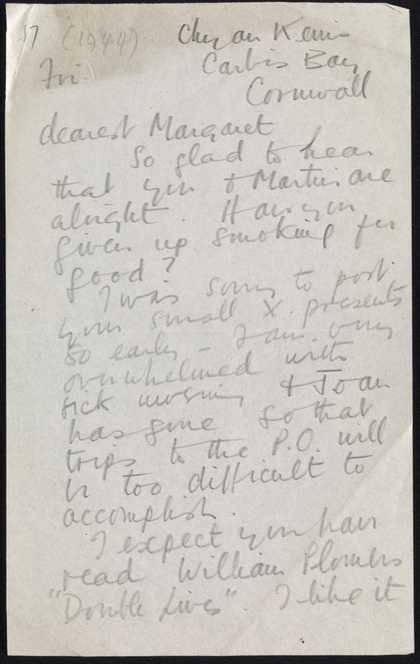 37 (1944) Chy an Kerris
Fri Carbis Bay
Cornwall
dearest Margaret
So glad to hear
that you & Martin are
alright. Have you
given up smoking for
good?
I was sorry to post
your small X. presents
so early – I am very
overwhelmed with
sick nursing & Joan
has gone so that
trips to the P.O. will
be too difficult to
accomplish.
I expect you have
read William Plomers
"Double Lives". I like it